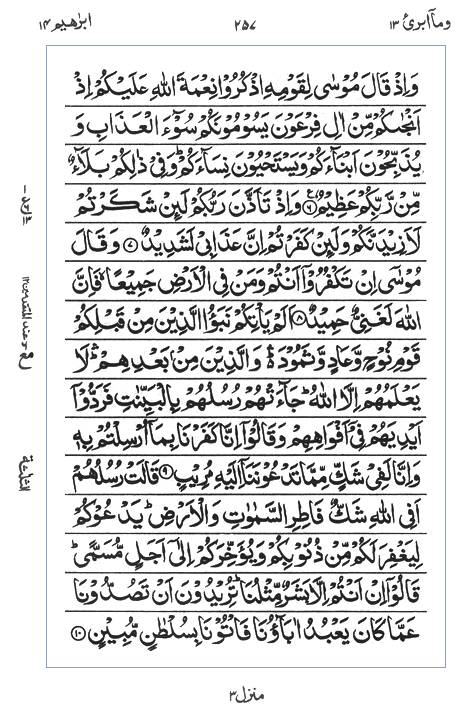 وماابرئ ١٣
٢٥٧
ابرٰهيم ١٤
وَاِذْ قَالَ مُوْسٰى لِقَوْمِهِ اذْكُرُوْا نِعْمَةَ اللّٰهِ عَلَيْكُمْ اِذْ
اَنْجٰىكُمْ مِّنْ اٰلِ فِرْعَوْنَ يَسُوْمُوْنَكُمْ سُوْٓءَ الْعَذَابِ وَ
يُذَبِّحُوْنَ اَبْنَآءَكُمْ وَيَسْتَحْيُوْنَ نِسَآءَكُمْ ؕ وَفِيْ ذٰلِكُمْ بَلَآءٌ
مِّنْ رَّبِّكُمْ عَظِيْمٌ ۝٦ وَاِذْ تَاَذَّنَ رَبُّكُمْ لَئِنْ شَكَرْتُمْ
لَاَزِيْدَنَّكُمْ وَلَئِنْ كَفَرْتُمْ اِنَّ عَذَابِيْ لَشَدِيْدٌ ۝٧ وَقَالَ
مُوْسٰٓى اِنْ تَكْفُرُوْٓا اَنْتُمْ وَمَنْ فِي الْاَرْضِ جَمِيْعًا ۙ فَاِنَّ
اللّٰهَ لَغَنِيٌّ حَمِيْدٌ ۝٨ اَلَمْ يَاْتِكُمْ نَبَؤُا الَّذِيْنَ مِنْ قَبْلِكُمْ
قَوْمِ نُوْحٍ وَّعَادٍ وَّثَمُوْدَ ۛ وَالَّذِيْنَ مِنْۢ بَعْدِهِمْ ۛ لَا
يَعْلَمُهُمْ اِلَّا اللّٰهُ ؕ جَآءَتْهُمْ رُسُلُهُمْ بِالْبَيِّنٰتِ فَرَدُّوْٓا
اَيْدِيَهُمْ فِيْٓ اَفْوَاهِهِمْ وَقَالُوْٓا اِنَّا كَفَرْنَا بِمَآ اُرْسِلْتُمْ بِهٖ
وَاِنَّا لَفِيْ شَكٍّ مِّمَّا تَدْعُوْنَنَآ اِلَيْهِ مُرِيْبٍ ۝٩ قَالَتْ رُسُلُهُمْ
اَفِي اللّٰهِ شَكٌّ فَاطِرِ السَّمٰوٰتِ وَالْاَرْضِ ؕ يَدْعُوْكُمْ
لِيَغْفِرَ لَكُمْ مِّنْ ذُنُوْبِكُمْ وَيُؤَخِّرَكُمْ اِلٰٓى اَجَلٍ مُّسَمًّى ؕ
قَالُوْٓا اِنْ اَنْتُمْ اِلَّا بَشَرٌ مِّثْلُنَا ؕ تُرِيْدُوْنَ اَنْ تَصُدُّوْنَا
عَمَّا كَانَ يَعْبُدُ اٰبَآؤُنَا فَاْتُوْنَا بِسُلْطٰنٍ مُّبِيْنٍ ۝١٠
الثلٰثة
منزل ٣